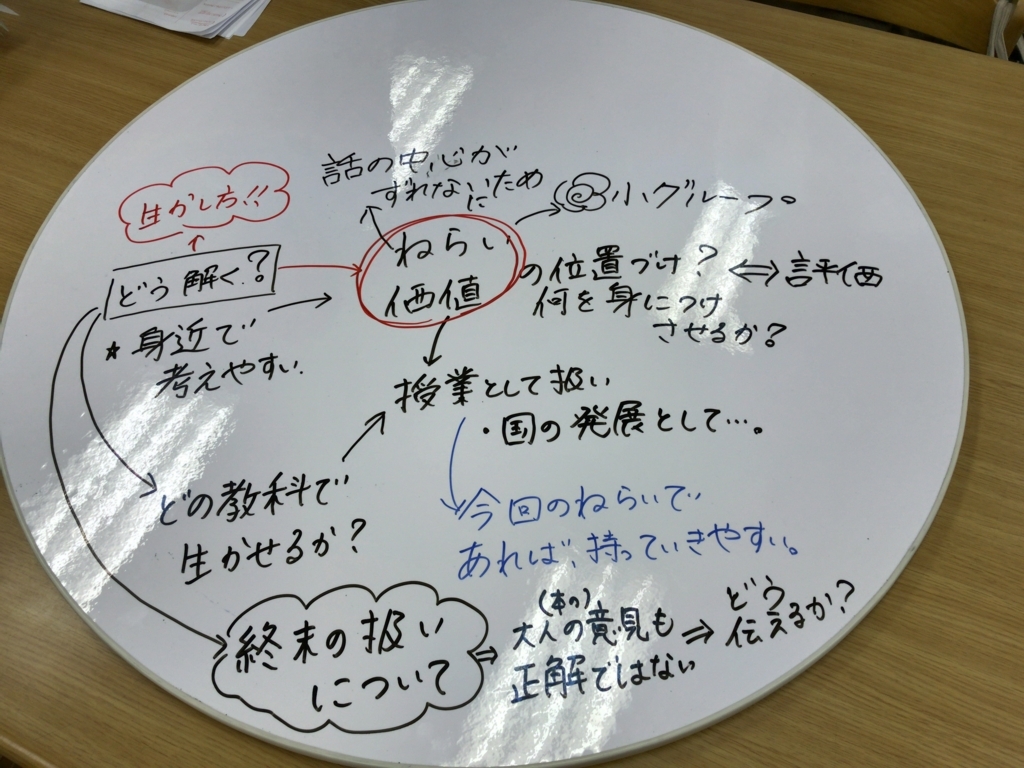 話の中心が
ずれないために
生かし方!!
小グループ。
ねらい
価値
の位置づけ?
⇔評価
何を身につけ
させるか?
どう解く?
★身近で
考えやすい.
授業として扱い
・国の発展として…。
どの教科で
生かせるか?
今回のねらいで
あれば、持っていきやすい。
終末の扱い
について
(本の)
大人の意見も
正解ではない
⇒
どう
伝えるか?